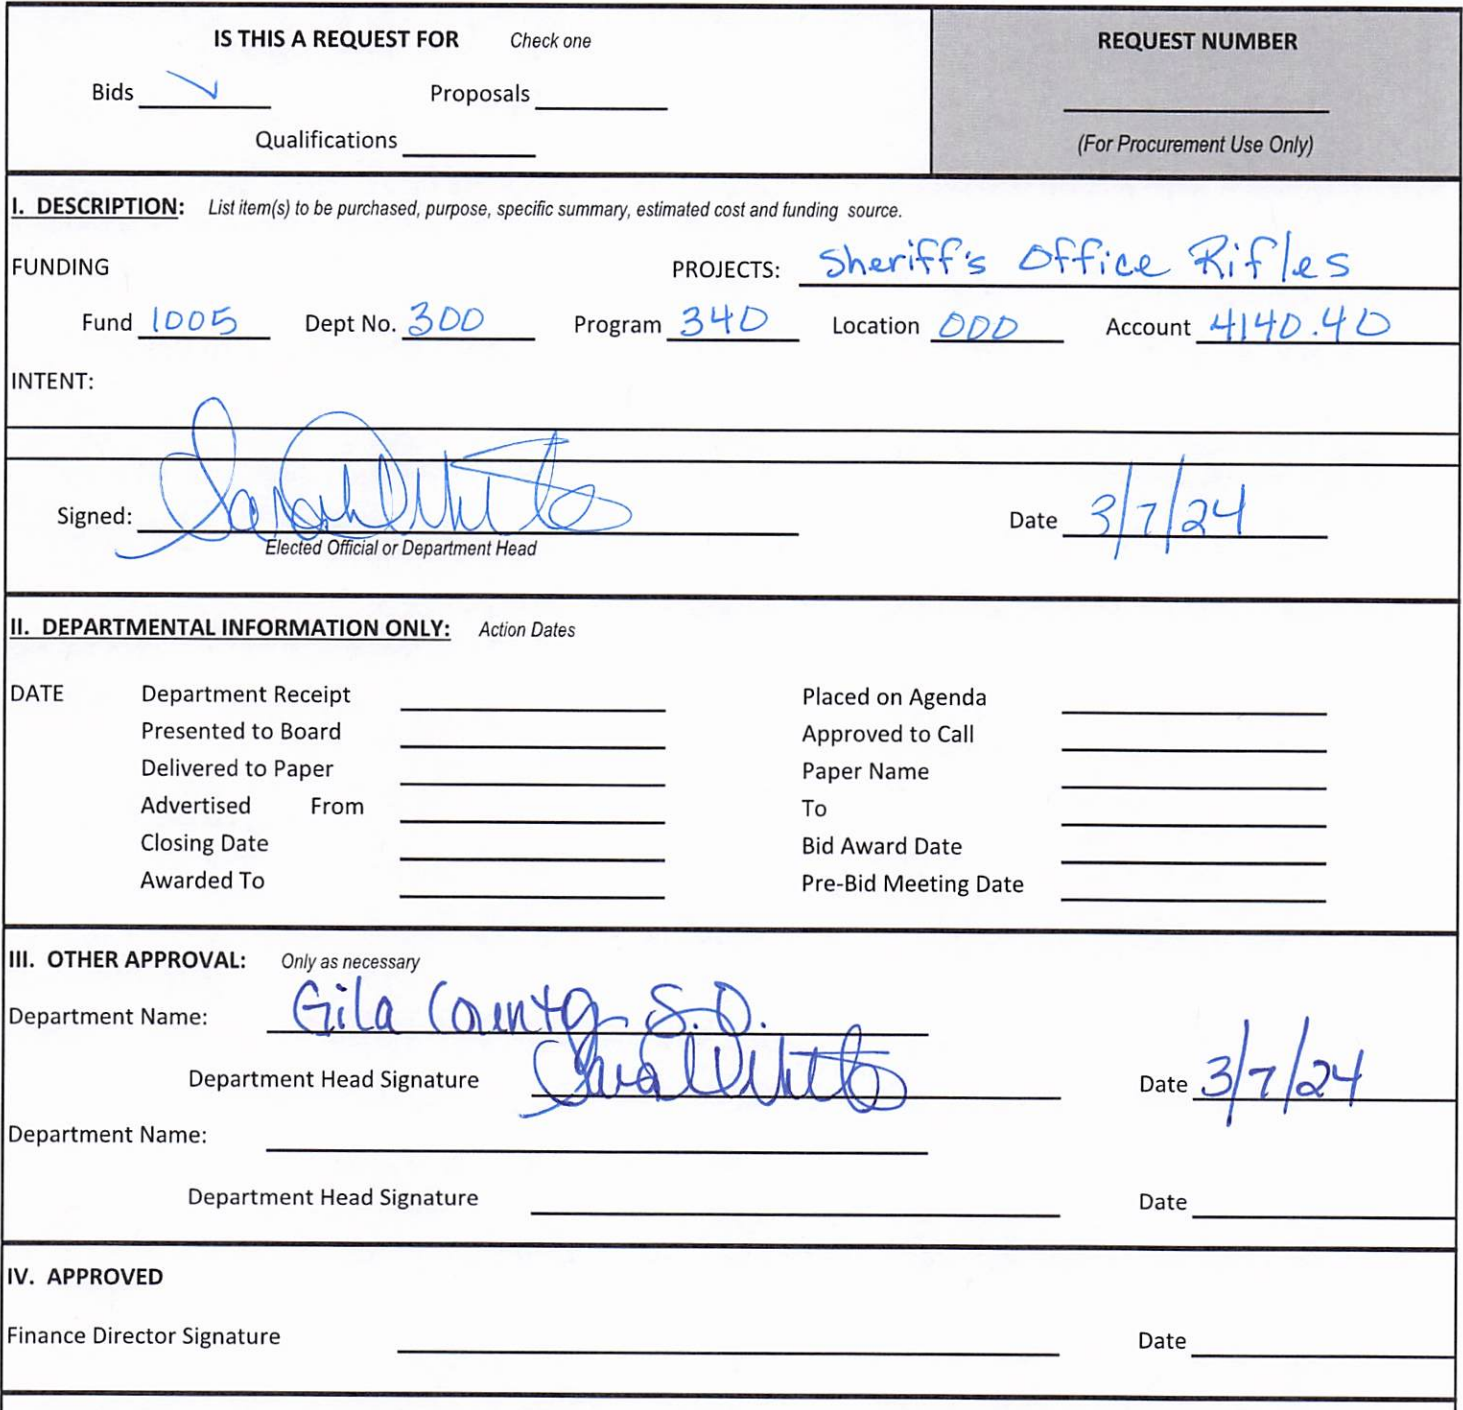 IS THIS A REQUEST FOR Check one
REQUEST NUMBER
Bids ✓ Proposals
Qualifications
(For Procurement Use Only)
I. DESCRIPTION: List item(s) to be purchased, purpose, specific summary, estimated cost and funding source.
FUNDING PROJECTS: Sheriff's Office Rifles
Fund 1005 Dept No. 300 Program 340 Location 000 Account 4140.40
INTENT:
Signed: Date 3/7/24
Elected Official or Department Head
II. DEPARTMENTAL INFORMATION ONLY: Action Dates
DATE Department Receipt Placed on Agenda
Presented to Board Approved to Call
Delivered to Paper Paper Name
Advertised From To
Closing Date Bid Award Date
Awarded To Pre-Bid Meeting Date
III. OTHER APPROVAL: Only as necessary
Department Name: Gila County S.O.
Department Head Signature Date 3/7/24
Department Name:
Department Head Signature Date
IV. APPROVED
Finance Director Signature Date